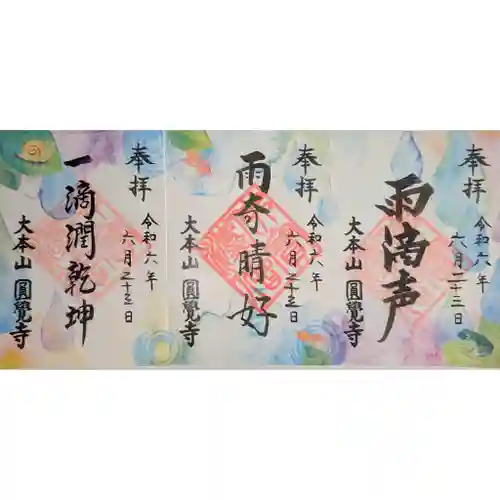 奉拝
令和六年
六月二十三日
雨滴声
大本山圓覺寺
奉拝
令和六年
六月二十三日
雨奇晴好
大本山圓覺寺
奉拝
令和六年
六月二十三日
一滴潤乾坤
大本山圓覺寺